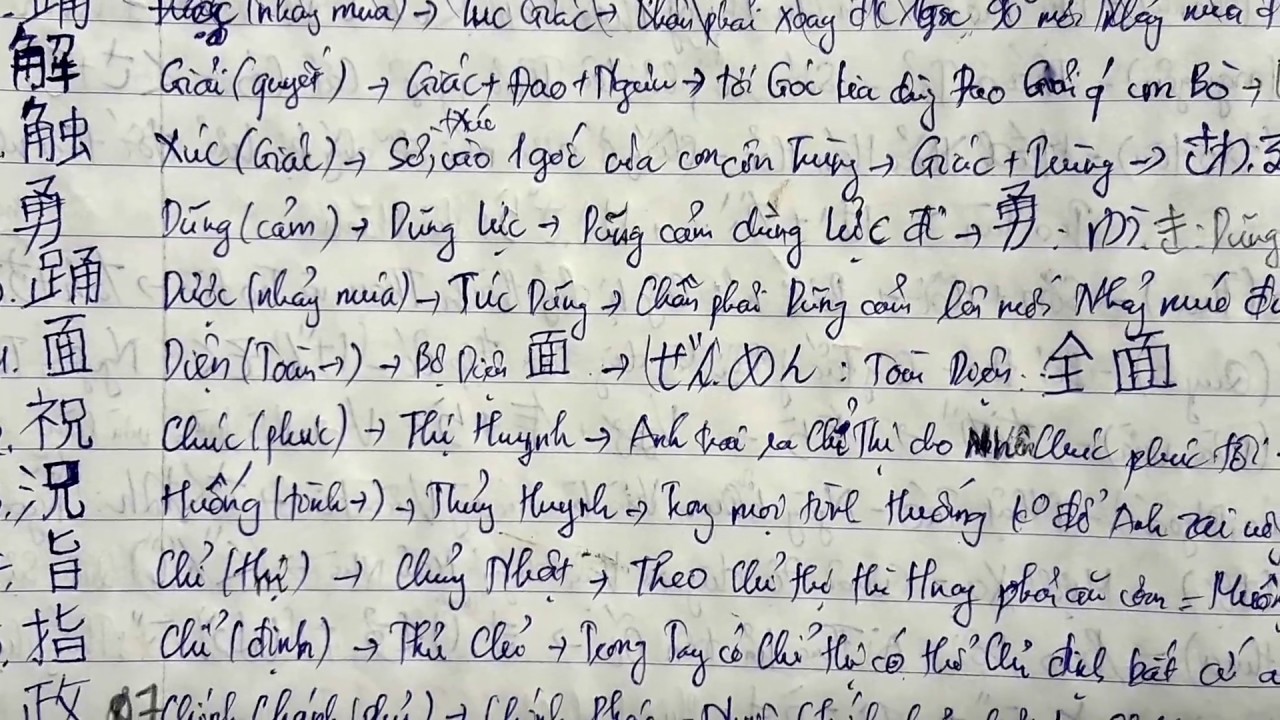 踊 (nhảy múa) → Túc Giác → Chân phải xoay đc góc 90 mới nhảy múa đ
解 Giải (quyết) → Giác + Đao + Ngưu → tới Góc kia dùng Đao Giải q' con Bò →
触 Xúc (Giác) → Sờ, +xúc vào 1 góc của con côn Trùng → Giác + Trùng → さわ.る
勇 Dũng (cảm) → Dũng lực → Dũng cảm dùng lực đi → 勇: ゆう.き: Dũng
踊 Dược (nhảy múa) → Túc Dũng → Chân phải Dũng cảm lên mới Nhảy múa đ
面 Diện (Toàn →) → Bộ Diện 面 → ぜん.めん : Toàn Diện. 全面
祝 Chúc (phúc) → Thị Huynh → Anh trai ra Chỉ Thị cho Chúc phúc tôi
況 Huống (tình →) → Thủy Huynh → Trong mọi tình Huống ko để Anh zai uố
旨 Chỉ (thị) → Chủy Nhật → Theo Chỉ thị thì phải = Muỗ
指 Chỉ (định) → Thủ Chỉ → Trong Tay có Chỉ thị có thể Chỉ định bất cứ a
政